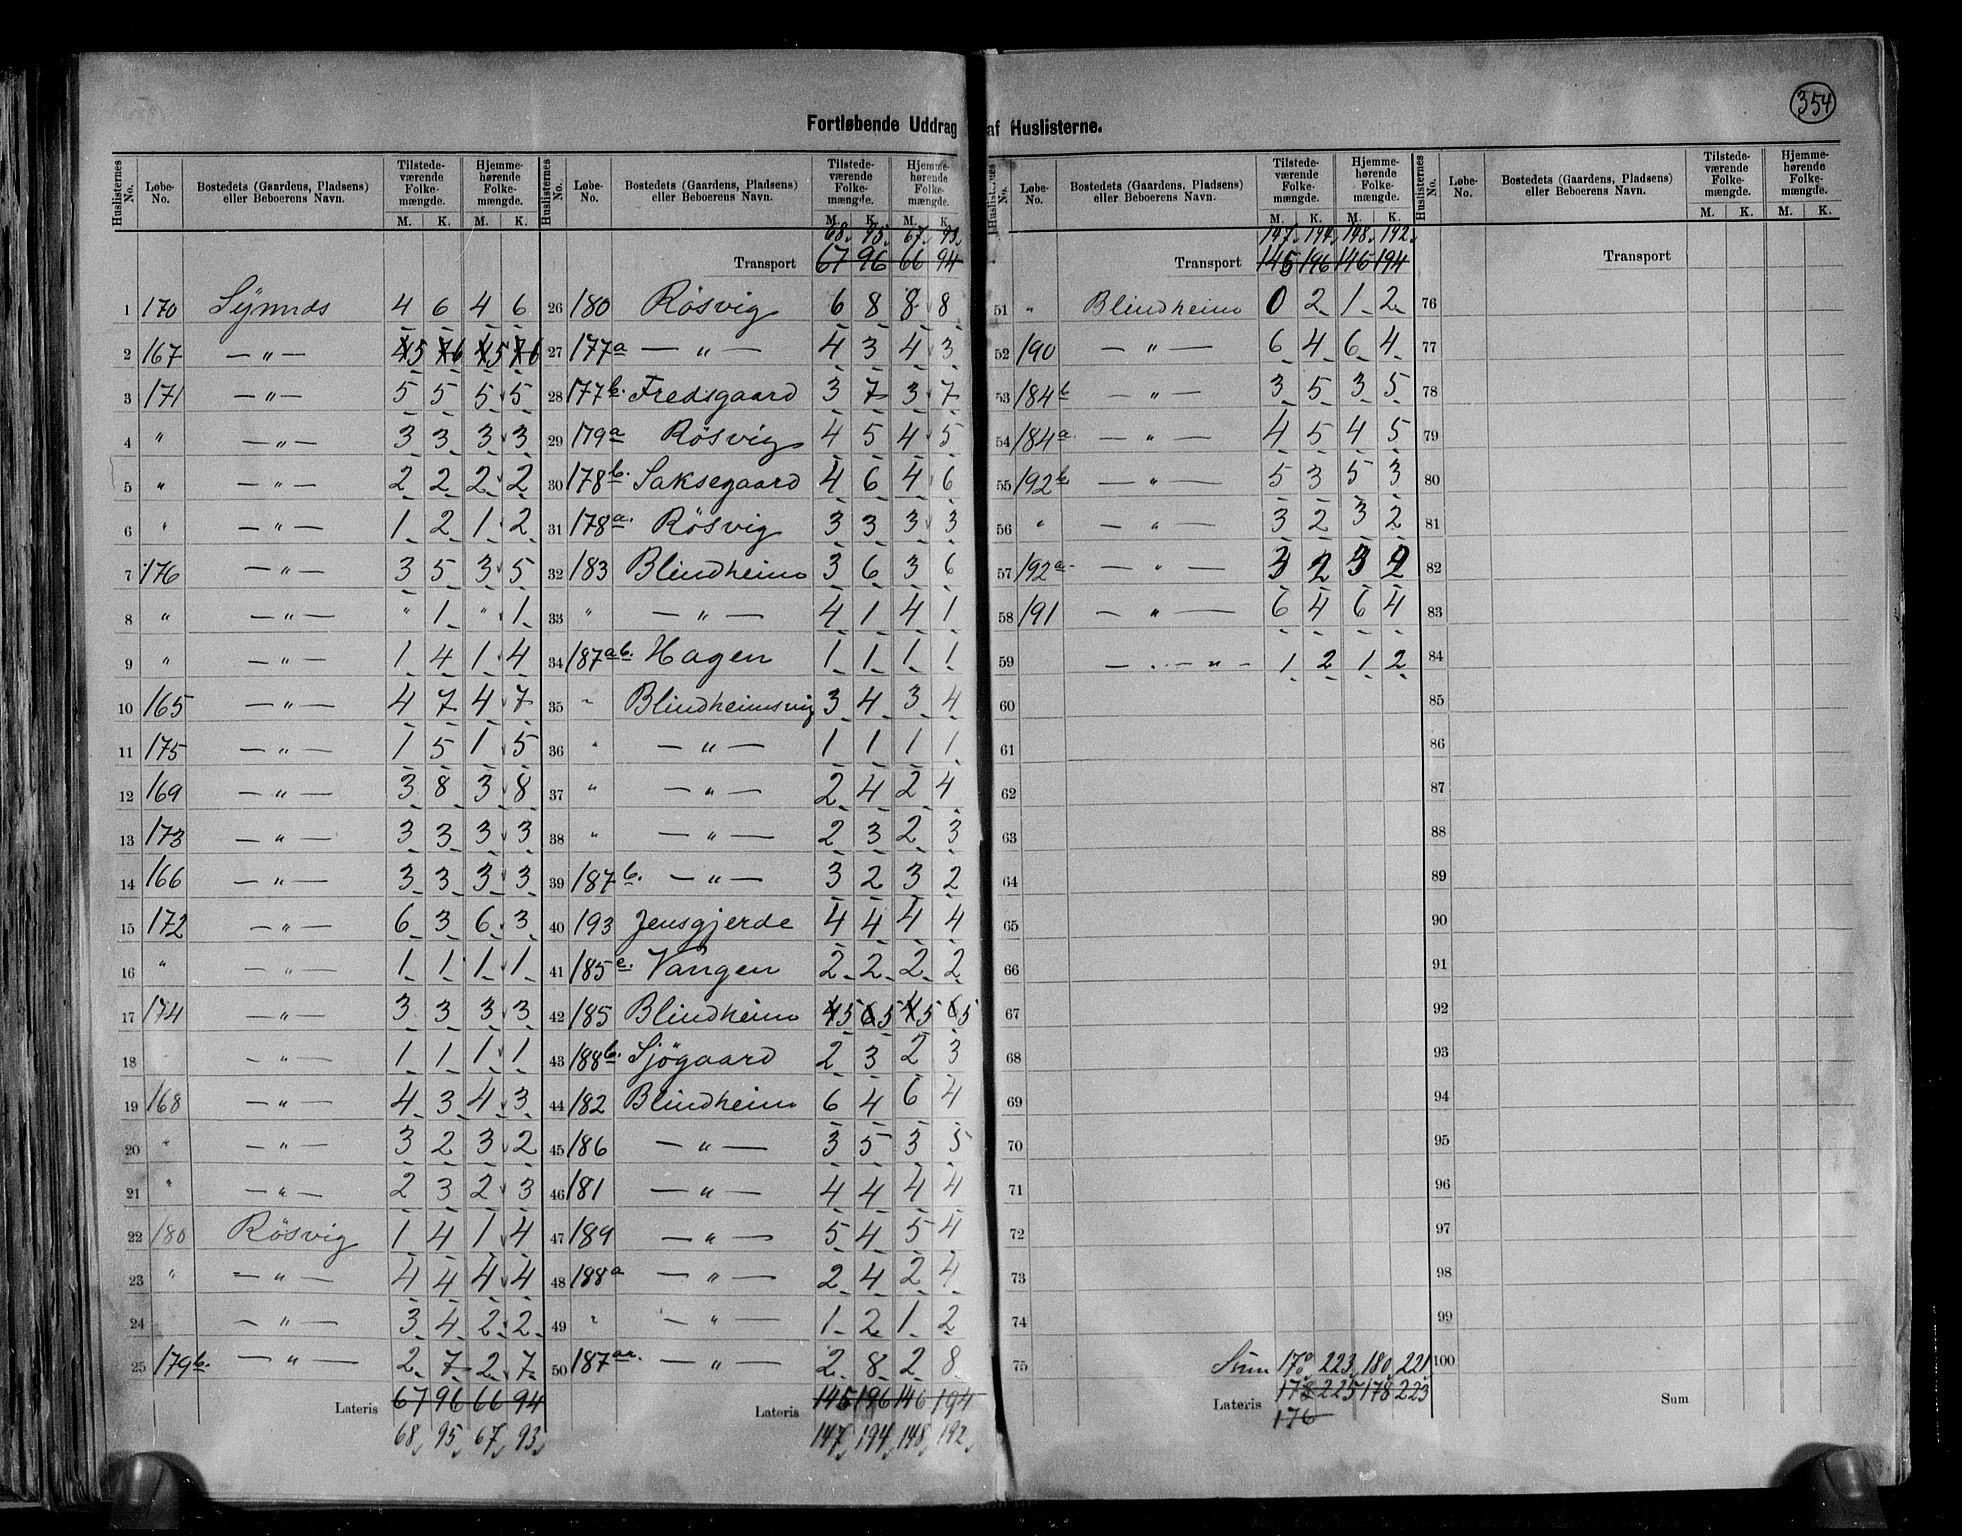 354
Fortløbende Uddrag af Huslisterne.
Huslisternes No. Løbe-No. Bostedets (Gaardens, Pladsens) eller Beboerens Navn. Tilstedeværende Folkemængde. M. K. Hjemmehørende Folkemængde. M. K.
1 170 Synnds 4 6 4 6
2 167 — " — 5 6 5 6
3 171 — " — 5 5 5 5
4 " — " — 3 3 3 3
5 " — " — 2 2 2 2
6 " — " — 1 2 1 2
7 176 — " — 3 5 3 5
8 " — " — " 1 " 1
9 " — " — 1 4 1 4
10 165 — " — 4 7 4 7
11 175 — " — 1 5 1 5
12 169 — " — 3 8 3 8
13 173 — " — 3 3 3 3
14 166 — " — 3 3 3 3
15 172 — " — 6 3 6 3
16 " — " — 1 1 1 1
17 174 — " — 3 3 3 3
18 — " — 1 1 1 1
19 168 — " — 4 3 4 3
20 " — " — 3 2 3 2
21 " — " — 2 3 2 3
22 180 Rösvig 1 4 1 4
23 " — " — 4 4 4 4
24 — " — 3 4 2 2
25 179b. — " — 2 7 2 7
Lateris 67 96 66 94
68 95 67 93
Huslisternes No. Løbe-No. Bostedets (Gaardens, Pladsens) eller Beboerens Navn. Tilstedeværende Folkemængde. M. K. Hjemmehørende Folkemængde. M. K.
68 95 67 93
Transport 67 96 66 94
26 180 Rösvig 6 8 8 8
27 177a — " — 4 3 4 3
28 177b. Fredsgaard 3 7 3 7
29 179a Rösvig 4 5 4 5
30 178b. Saksegaard 4 6 4 6
31 178a. Rösvig 3 3 3 3
32 183 Blindheim 3 6 3 6
33 " — " — 4 1 4 1
34 187ab. Hagen 1 1 1 1
35 " Blindheimsvig 3 4 3 4
36 " — " — 1 1 1 1
37 " — " — 2 4 2 4
38 " — " — 2 3 2 3
39 187b. — " — 3 2 3 2
40 193 Jensgjerde 4 4 4 4
41 185c. Vangen 2 2 2 2
42 185 Blindheim 5 5 5 5
43 188b. Sjögaard 2 3 2 3
44 182 Blindheim 6 4 6 4
45 186 — " — 3 5 3 5
46 181 — " — 4 4 4 4
47 189 — " — 5 4 5 4
48 188a — " — 2 4 2 4
49 " — " — 1 2 1 2
50 187aa. — " — 2 8 2 8
Lateris 145 196 146 194
147 194 148 192
Huslisternes No. Løbe-No. Bostedets (Gaardens, Pladsens) eller Beboerens Navn. Tilstedeværende Folkemængde. M. K. Hjemmehørende Folkemængde. M. K.
147 194 148 192
Transport 145 196 146 194
51 " Blindheim 0 2 1 2
52 190 — " — 6 4 6 4
53 184b — " — 3 5 3 5
54 184a. — " — 4 5 4 5
55 192b. — " — 5 3 5 3
56 " — " — 3 2 3 2
57 192a. — " — 3 2 3 2
58 191 — " — 6 4 6 4
59 — " — 1 2 1 2
60
61
62
63
64
65
66
67
68
69
70
71
72
73
74
75
Sum 223 180 221
Lateris 178 225 178 223
176
Huslisternes No. Løbe-No. Bostedets (Gaardens, Pladsens) eller Beboerens Navn. Tilstedeværende Folkemængde. M. K. Hjemmehørende Folkemængde. M. K.
Transport
76
77
78
79
80
81
82
83
84
85
86
87
88
89
90
91
92
93
94
95
96
97
98
99
100
Sum